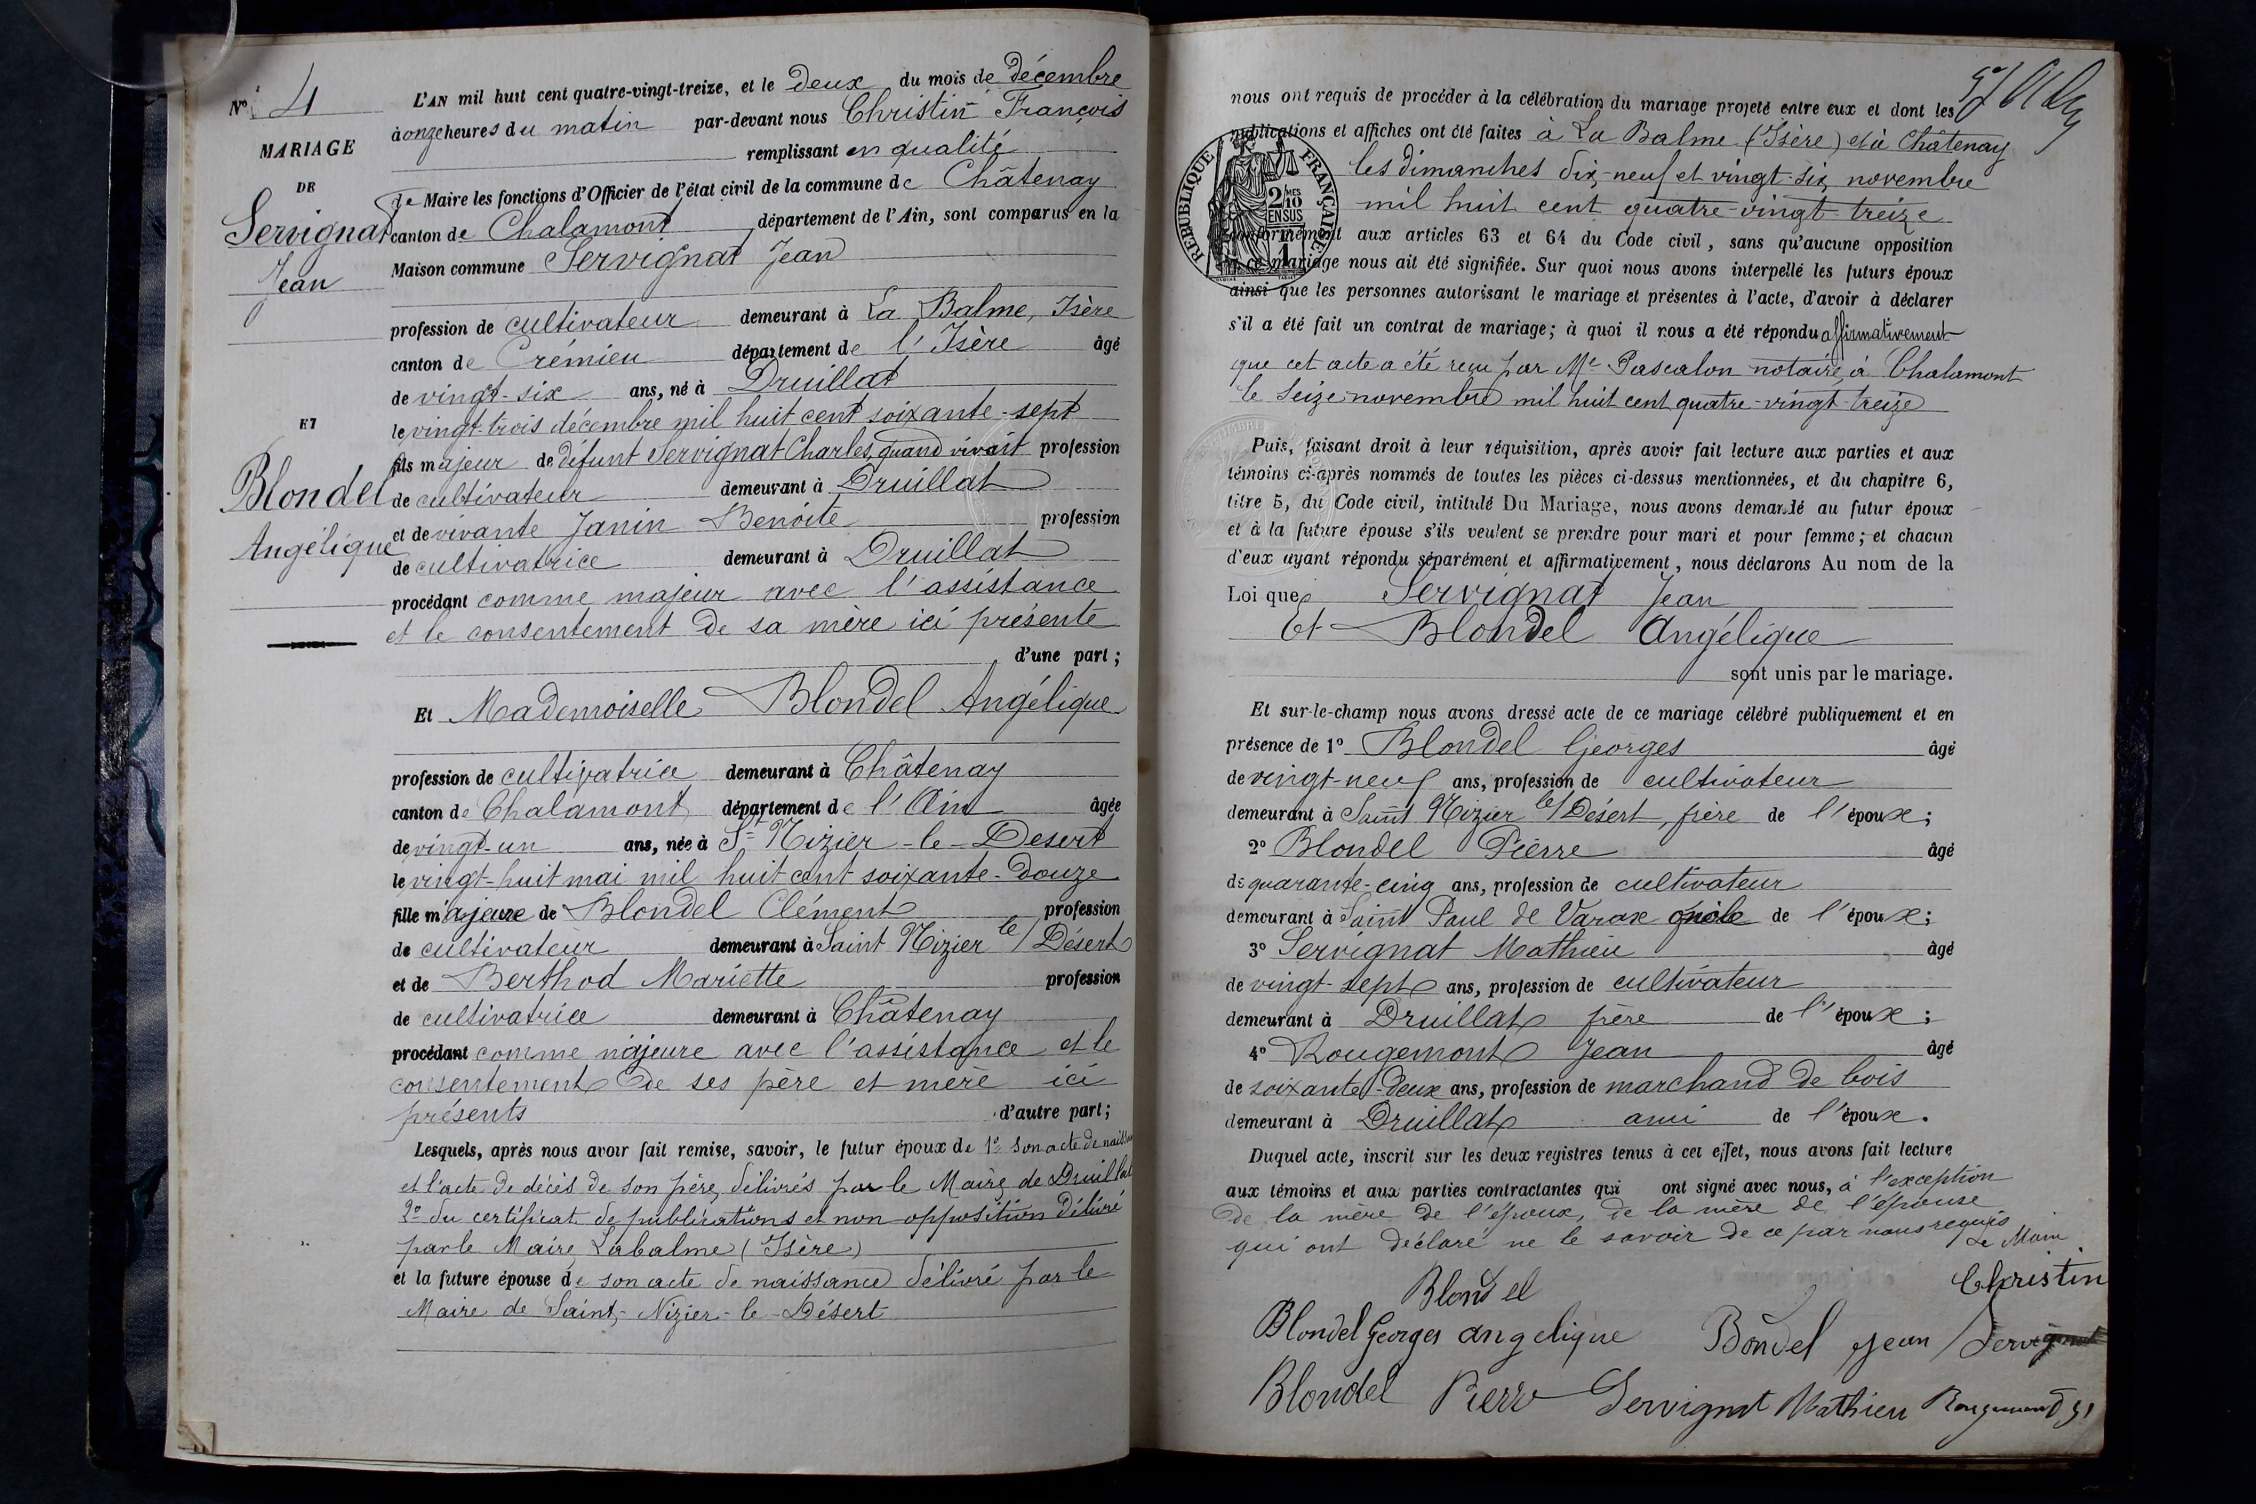 N° 4
MARIAGE
DE
Servignat
Jean
ET
Blondel
Angélique
L'AN mil huit cent quatre-vingt-treize, et le Deux du mois de décembre
à onze heures du matin par-devant nous Christin François
remplissant en qualité
de Maire les fonctions d'Officier de l'état civil de la commune de Châtenay
canton de Chalamont, département de l'Ain, sont comparus en la
Maison commune Servignat Jean
profession de cultivateur demeurant à La Balme, Isère
canton de Crémieu département de l'Isère âgé
de vingt-six ans, né à Druillat
le vingt-trois décembre mil huit cent soixante-sept
fils majeur de défunt Servignat Charles, quand vivait profession
de cultivateur demeurant à Druillat
et de vivante Janin Benoite profession
de cultivatrice demeurant à Druillat
procédant comme majeur avec l'assistance
et le consentement de sa mère ici présente
d'une part ;
Et Mademoiselle Blondel Angélique
profession de cultivatrice demeurant à Châtenay
canton de Chalamont département de l'Ain âgée
de vingt-un ans, née à St Nizier-le-Desert
le vingt-huit mai mil huit cent soixante-douze
fille majeure de Blondel Clément profession
de cultivateur demeurant à Saint Nizier le/ Désert
et de Berthod Mariette profession
de cultivatrice demeurant à Châtenay
procédant comme majeure avec l'assistance et le
consentement de ses père et mère ici
présents d'autre part ;
Lesquels, après nous avoir fait remise, savoir, le futur époux de 1° son acte de naissan
et l'acte de décès de son père, délivrés par le Maire de Druillat
2° du certificat de publications et non-opposition délivré
par le Maire Labalme (Isère)
et la future épouse de son acte de naissance délivré par le
Maire de Saint-Nizier-le-Désert
nous ont requis de procéder à la célébration du mariage projeté entre eux et dont les
publications et affiches ont été faites à La Balme (Isère) et à Châtenay
les dimanches dix-neuf et vingt-six novembre
mil huit cent quatre-vingt-treize
RÉPUBLIQUE FRANÇAISE
2/10 MES
EN SUS
conformément aux articles 63 et 64 du Code civil, sans qu'aucune opposition
à ce mariage nous ait été signifiée. Sur quoi nous avons interpellé les futurs époux
ainsi que les personnes autorisant le mariage et présentes à l'acte, d'avoir à déclarer
s'il a été fait un contrat de mariage ; à quoi il nous a été répondu affirmativement
que cet acte a été reçu par Me Pascalon notaire à Chalamont
le seize novembre mil huit cent quatre-vingt-treize
Puis, faisant droit à leur réquisition, après avoir fait lecture aux parties et aux
témoins ci-après nommés de toutes les pièces ci-dessus mentionnées, et du chapitre 6,
titre 5, du Code civil, intitulé Du Mariage, nous avons demandé au futur époux
et à la future épouse s'ils veulent se prendre pour mari et pour femme ; et chacun
d'eux ayant répondu séparément et affirmativement, nous déclarons Au nom de la
Loi que Servignat Jean
Et Blondel Angélique
sont unis par le mariage.
Et sur-le-champ nous avons dressé acte de ce mariage célébré publiquement et en
présence de 1° Blondel Georges âgé
de vingt-neuf ans, profession de cultivateur
demeurant à Saint Nizier le/ Désert, frère de l'époux ;
2° Blondel Pierre âgé
de quarante-cinq ans, profession de cultivateur
demeurant à Saint Paul de Varax oncle de l'époux ;
3° Servignat Mathieu âgé
de vingt-sept ans, profession de cultivateur
demeurant à Druillat frère de l'époux ;
4° Rougemont Jean âgé
de soixante-deux ans, profession de marchand de bois
demeurant à Druillat ami de l'époux.
Duquel acte, inscrit sur les deux registres tenus à cet effet, nous avons fait lecture
aux témoins et aux parties contractantes qui ont signé avec nous, à l'exception
de la mère de l'époux, de la mère de l'épouse
qui ont déclaré ne le savoir de ce par nous requis
Le Maire
Blondel Christin
Blondel Georges angelique Bondel Jean Servignat
Blondel Pierre Servignat Mathieu Rougemont